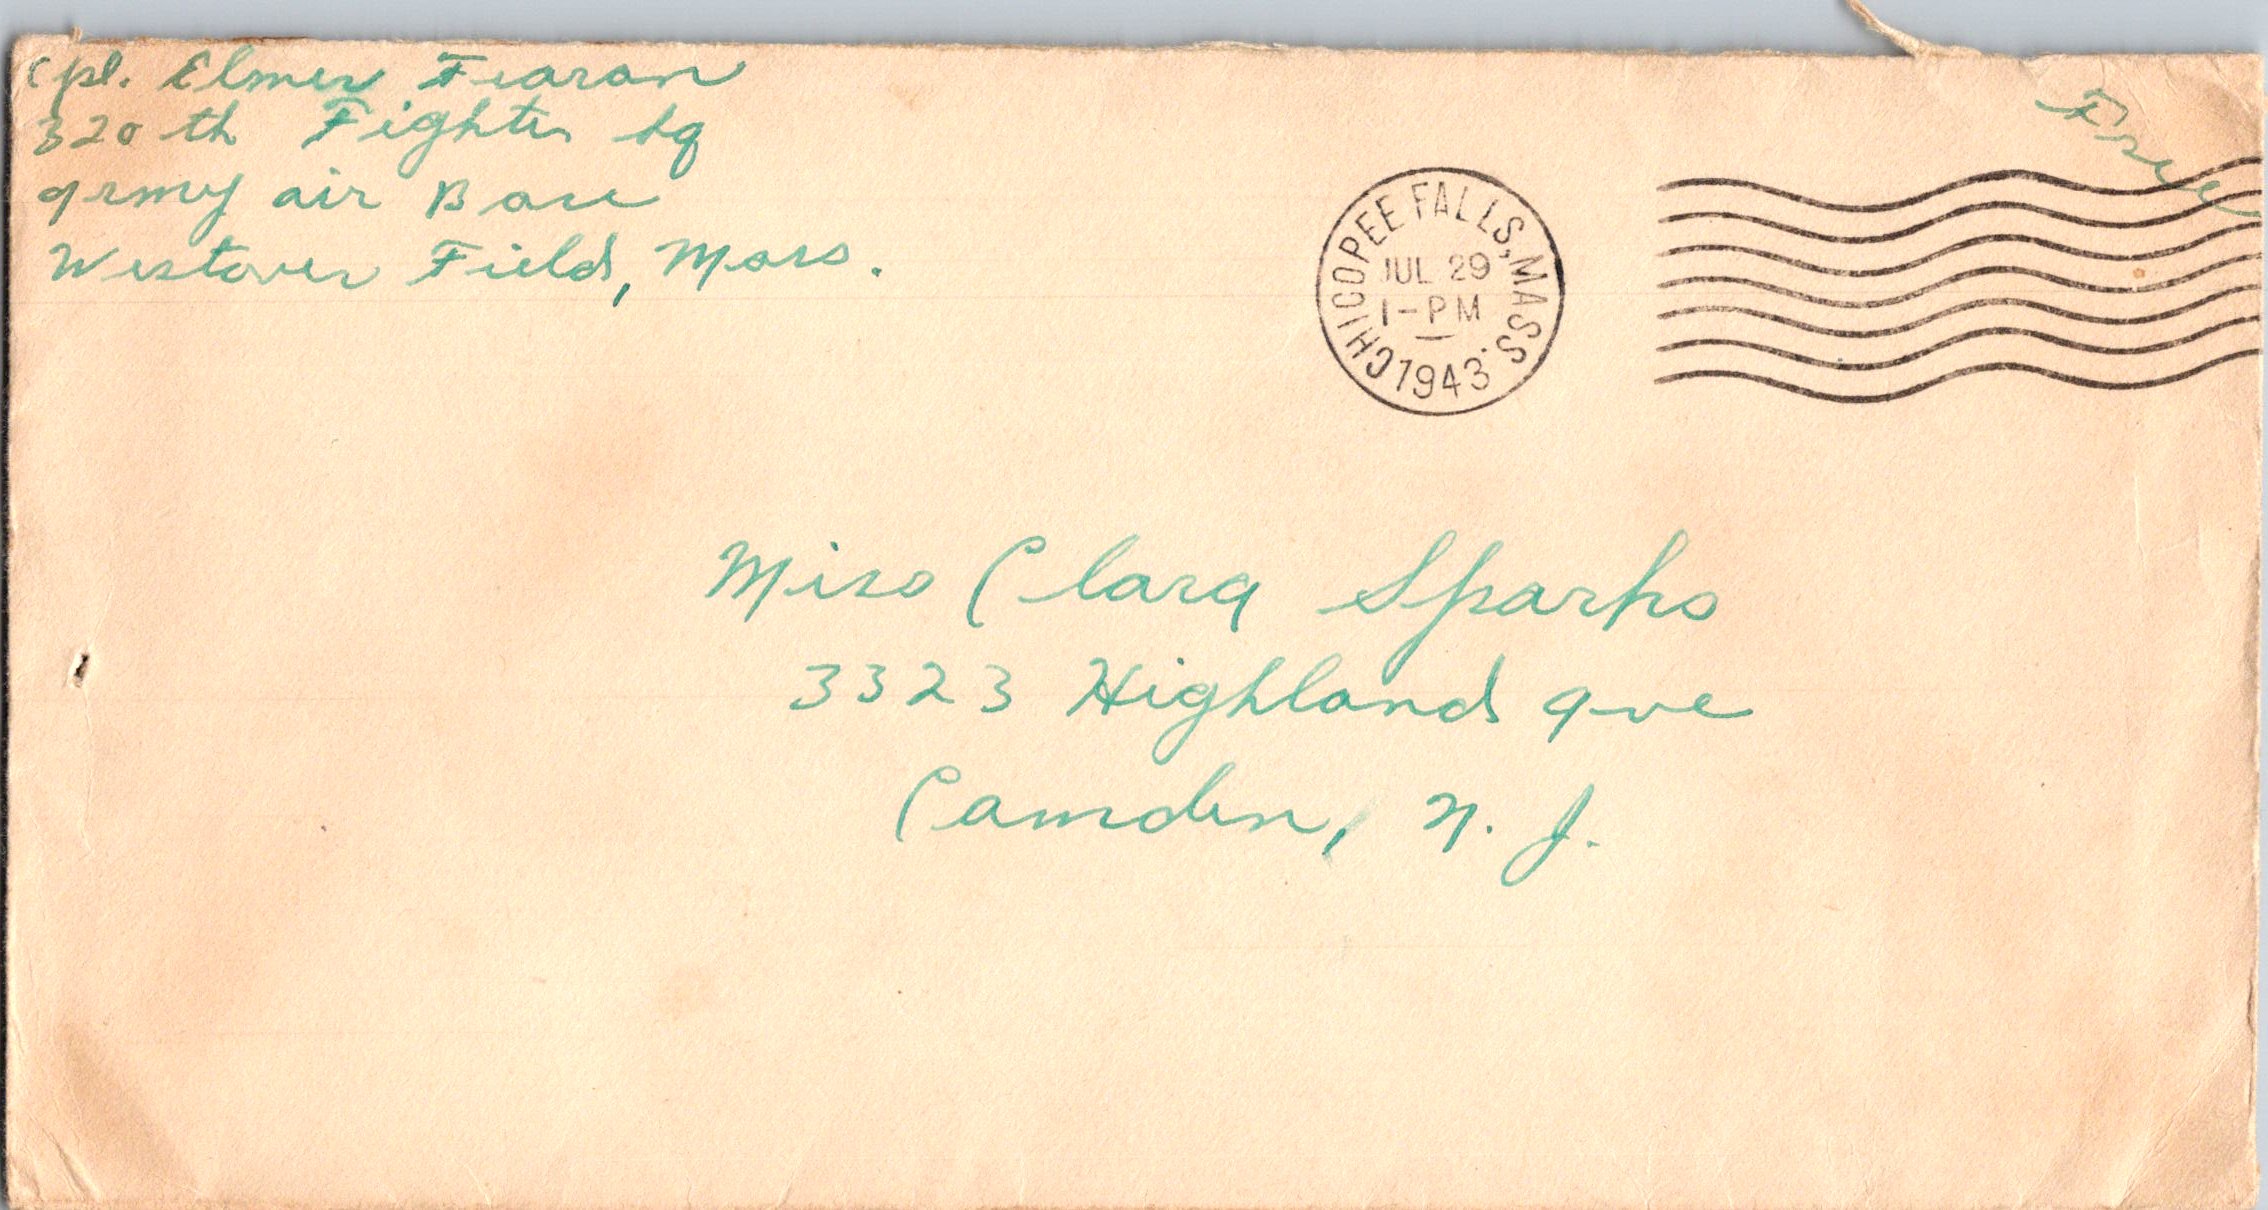 Cpl. Elmer Fearon
320th Fighter Sq
Army Air Base
Westover Field, Mass.
Free
CHICOPEE FALLS, MASS.
JUL 29
1-PM
1943
Miss Clara Sparks
3323 Highland Ave
Camden, N. J.